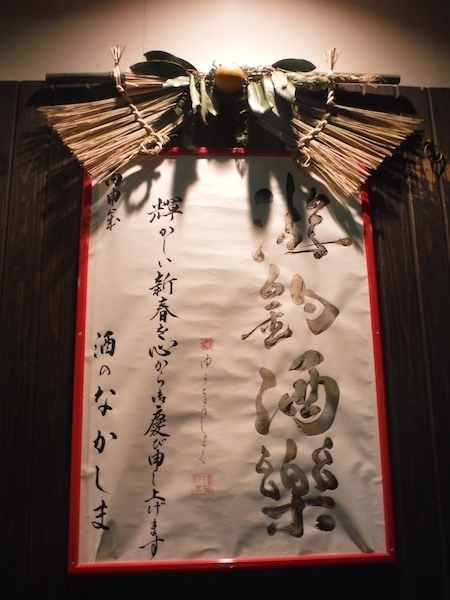 遊釣酒樂
ゆうちょうしゅらく
輝かしい新春を心から御慶び申し上げます
丙申
酒のなかしま